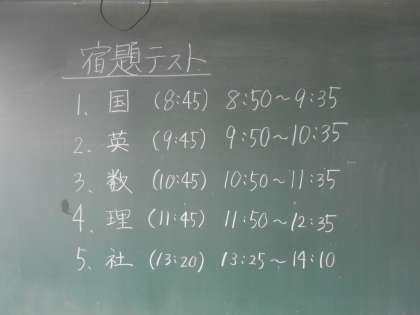 宿題テスト
1、国 (8:45) 8:50～9:35
2、英 (9:45) 9:50～10:35
3、数 (10:45) 10:50～11:35
4、理 (11:45) 11:50～12:35
5、社 (13:20) 13:25～14:10